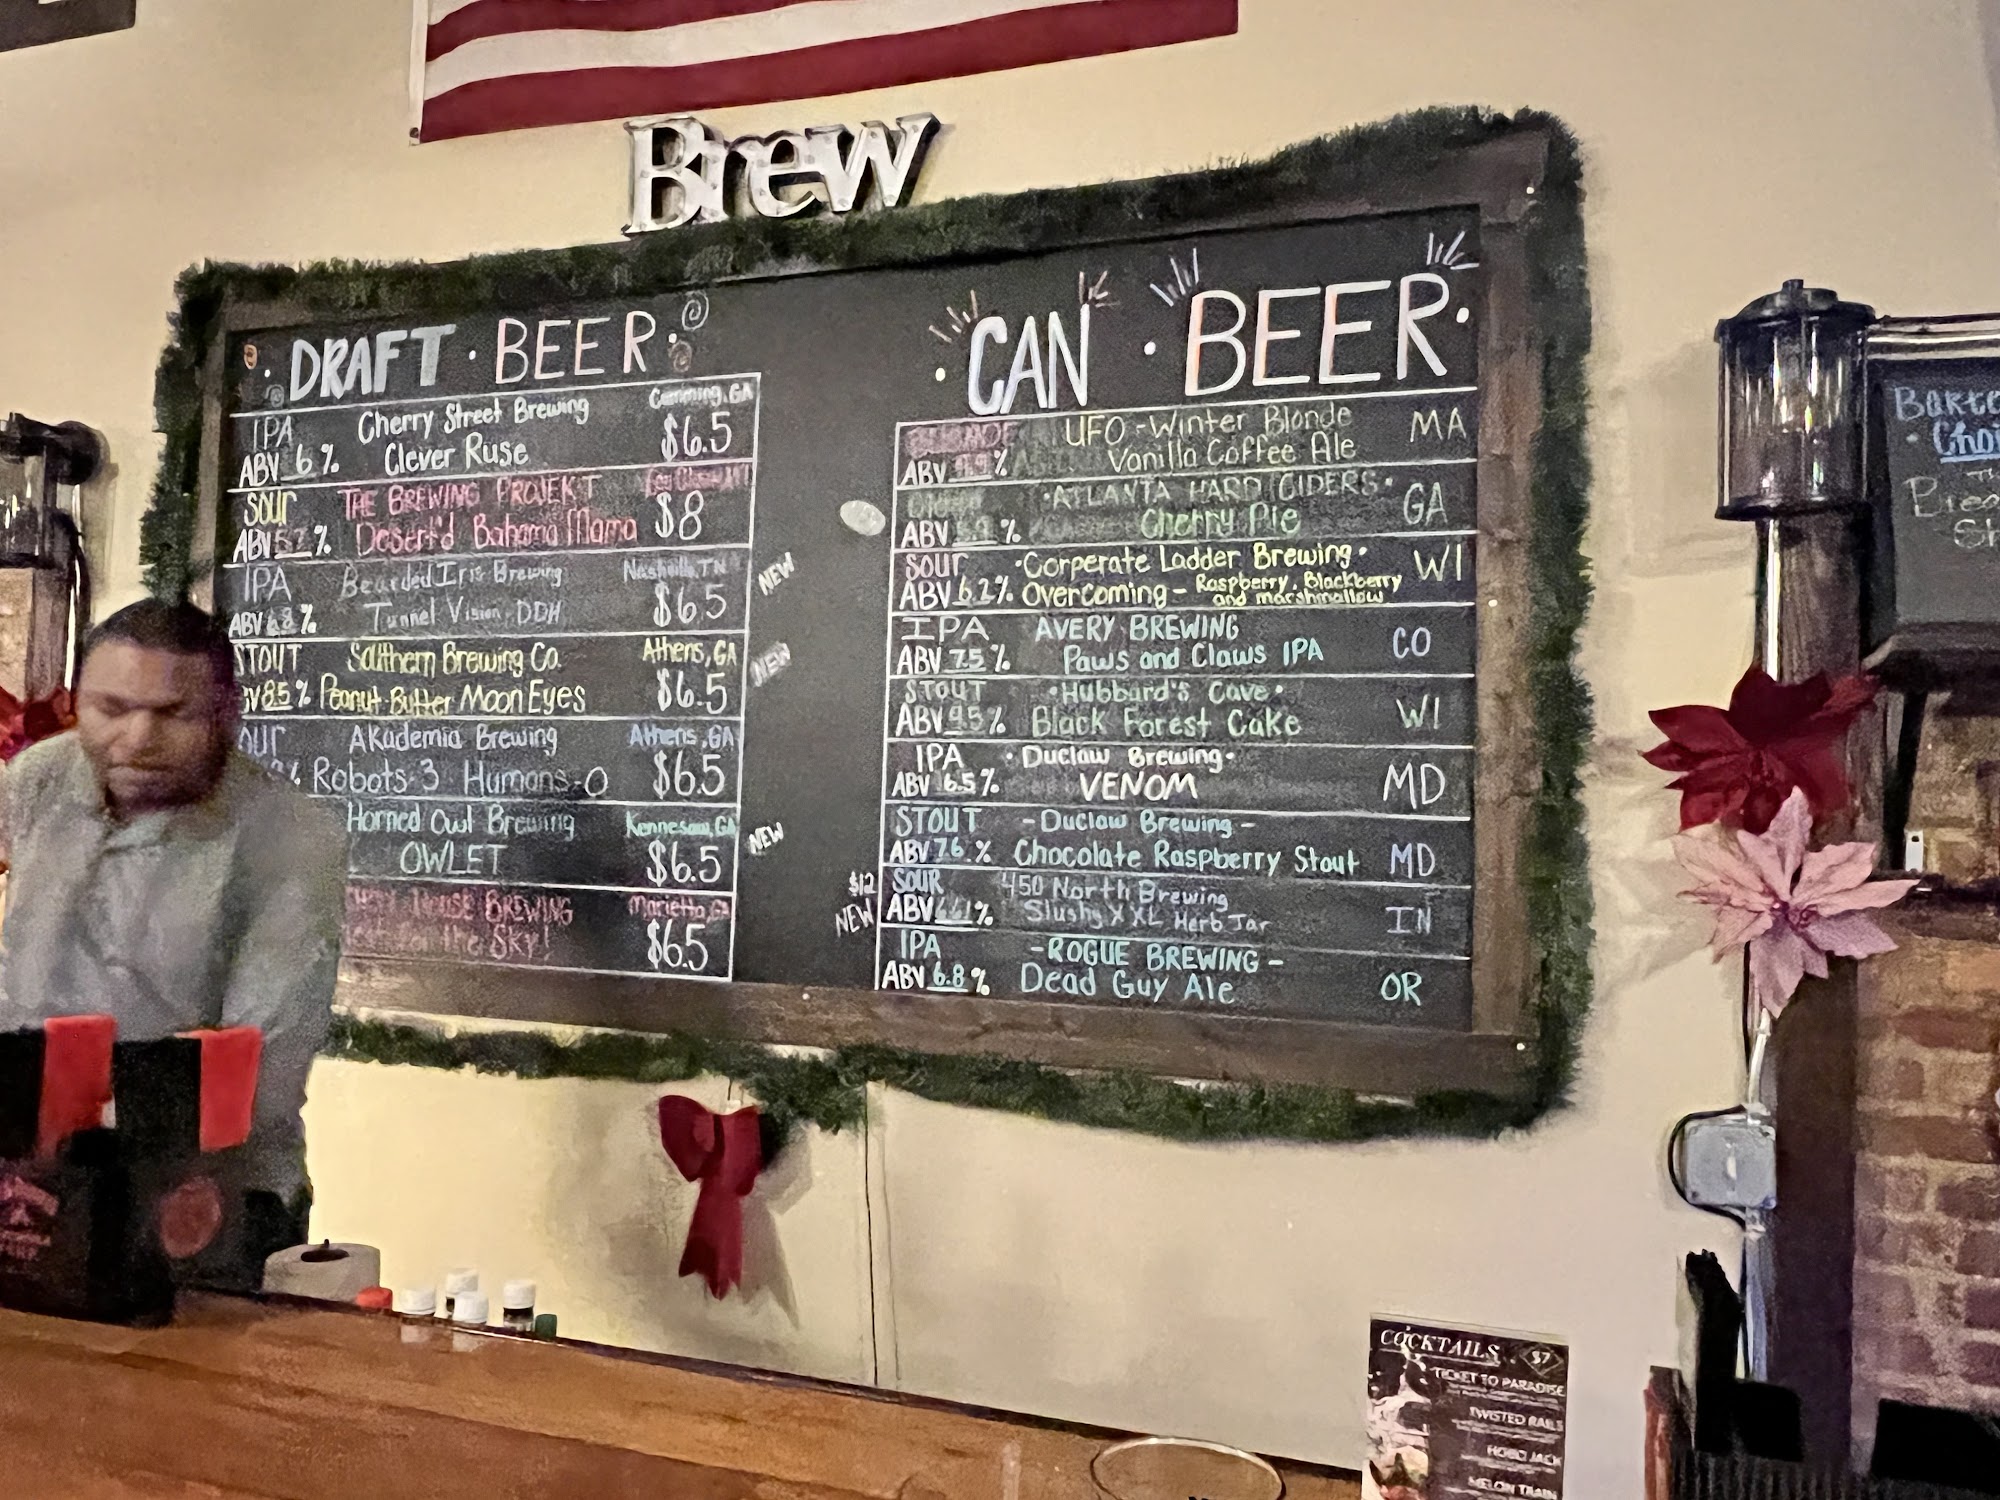 Brew
DRAFT · BEER ·
IPA Cherry Street Brewing Cumming, GA
ABV 6 % Clever Ruse $6.5
SOUR THE BREWING PROJEKT
ABV 5.7 % Desert'd Bahama Mama $8
IPA Bearded Iris Brewing Nashville, TN NEW
ABV 6.8 % Tunnel Vision, DDH $6.5
STOUT Southern Brewing Co. Athens, GA NEW
8.5 % Peanut Butter Moon Eyes $6.5
OUR Akademia Brewing Athens, GA
% Robots-3 Humans-0 $6.5
Horned Owl Brewing Kennesaw, GA NEW
OWLET $6.5
HOUSE BREWING Marietta, GA
the Sky! $6.5
· CAN · BEER ·
UFO - Winter Blonde MA
ABV % Vanilla Coffee Ale
· ATLANTA HARD CIDERS · GA
ABV % Cherry Pie
SOUR · Corperate Ladder Brewing · WI
ABV 6.2 % Overcoming - Raspberry, Blackberry
and marshmallow
IPA AVERY BREWING CO
ABV 7.5 % Paws and Claws IPA
STOUT · Hubbard's Cave · WI
ABV 9.5 % Black Forest Cake
IPA · Duclaw Brewing · MD
ABV 6.5 % VENOM
STOUT - Duclaw Brewing - MD
ABV 7.6 % Chocolate Raspberry Stout
$12 SOUR 450 North Brewing IN
NEW ABV % Slushy XXL Herb Jar
IPA - ROGUE BREWING - OR
ABV 6.8 % Dead Guy Ale
COCKTAILS $7
TICKET TO PARADISE
TWISTED RAILS
HOBO JACK
MELON TRAIN